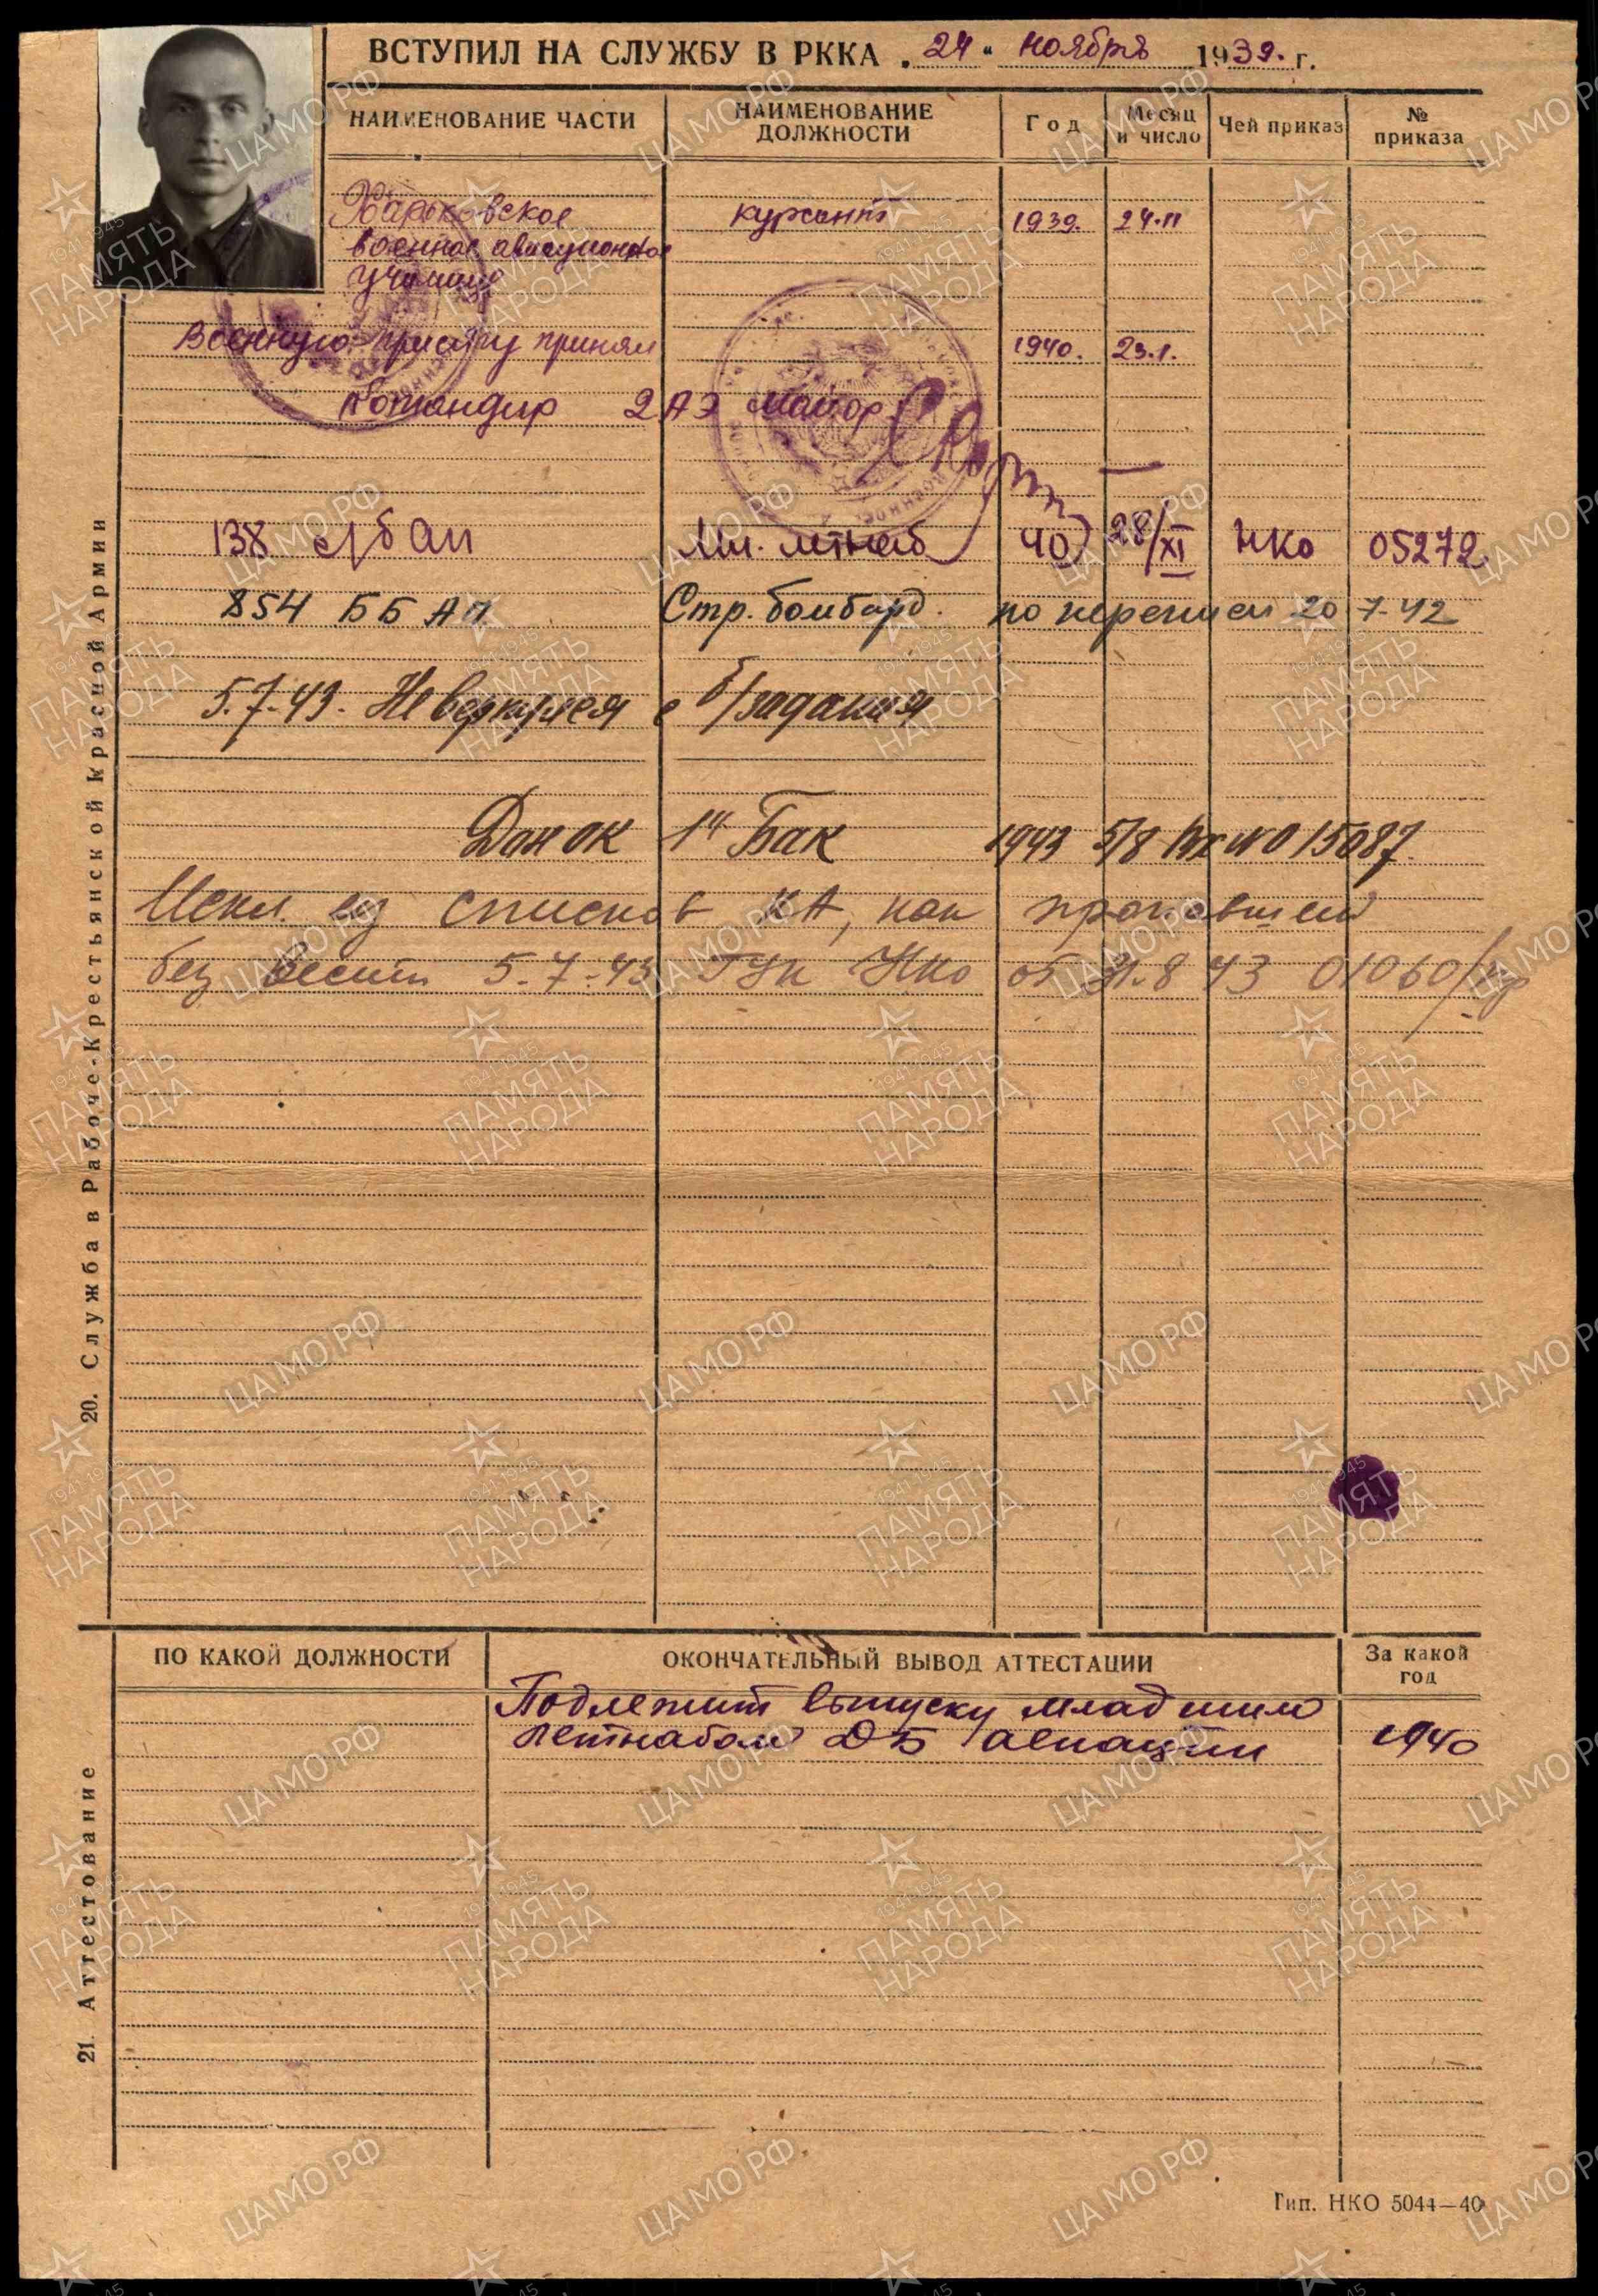 ВСТУПИЛ НА СЛУЖБУ В РККА „24“ ноября 1939. г.
НАИМЕНОВАНИЕ ЧАСТИ НАИМЕНОВАНИЕ ДОЛЖНОСТИ Год Месяц и число Чей приказ № приказа
Харьковское курсант 1939. 24.11
военное авиационное
училище
Военную присягу принял 1940. 23.1.
Командир 2 АЭ майор
138 с/бап Мл. летнаб 40 28/XI НКО 05272
854 ББАП Стр. бомбард. по переписи 20 7-42
5.7-43. Не вернулся с б/задания
Дон ОК 1й Бак 1943 5/8 Вх №015087.
Искл. из списков КА, как пропавший
без вести 5.7.-43 ГУК НКО 01060/пр
20. Служба в Рабоче-Крестьянской Красной Армии
ПО КАКОЙ ДОЛЖНОСТИ ОКОНЧАТЕЛЬНЫЙ ВЫВОД АТТЕСТАЦИИ За какой год
Подлежит выпуску младшим
летнабом ДБ авиации 1940
21. Аттестование
Тип. НКО 5044—40
ЦАМО.РФ
1941-1945
ПАМЯТЬ
НАРОДА